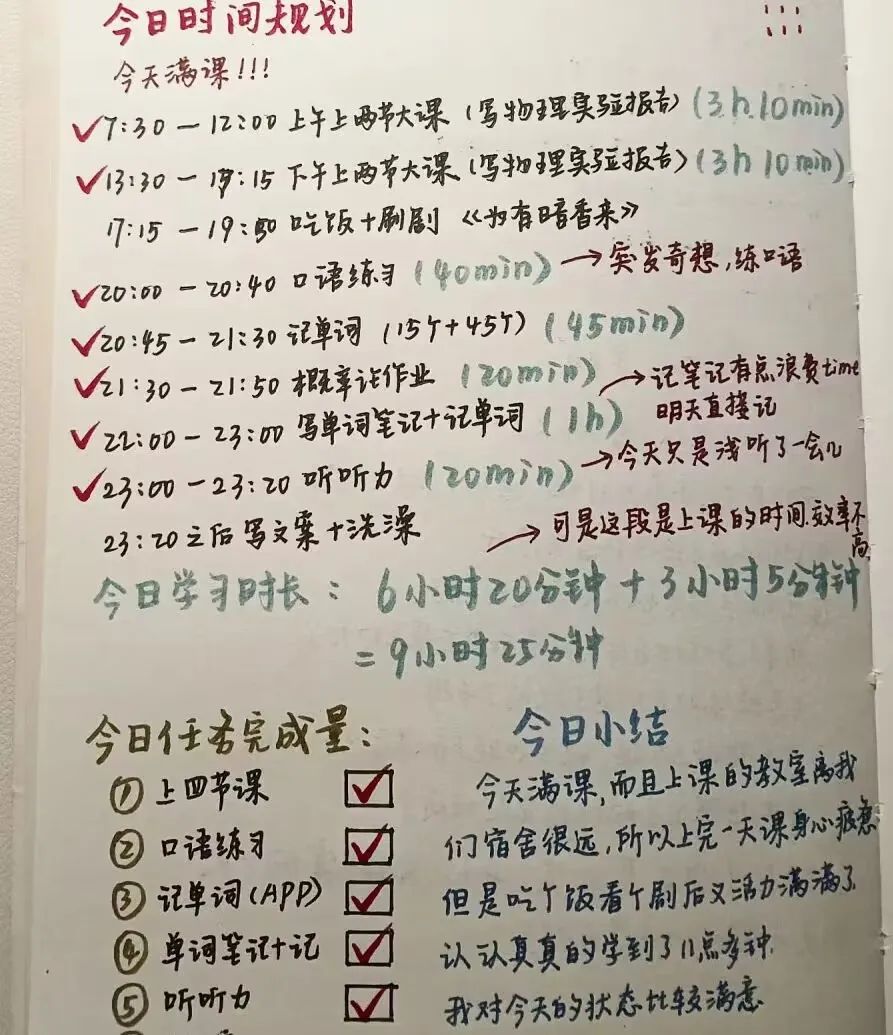 今日时间规划
今天满课!!!
7:30 — 12:00 上午上两节大课 (写物理实验报告) (3h 10min)
13:30 — 17:15 下午上两节大课 (写物理实验报告) (3h 10min)
17:15 — 19:50 吃饭+刷剧 《为有暗香来》
20:00 — 20:40 口语练习 (40min) → 突发奇想,练口语
20:45 — 21:30 记单词 (15个+45个) (45min)
21:30 — 21:50 概率论作业 (20min)
→ 记笔记有点浪费time
明天直接记
22:00 — 23:00 写单词笔记+记单词 (1h)
23:00 — 23:20 听听力 (20min) → 今天只是浅听了一会儿
23:20之后 写文案+洗澡
→ 可是这段是上课的时间,效率不高
今日学习时长: 6小时20分钟 + 3小时5分钟
= 9小时25分钟
今日任务完成量:
① 上四节课
② 口语练习
③ 记单词(APP)
④ 单词笔记+记
⑤ 听听力
今日小结
今天满课,而且上课的教室离我
们宿舍很远,所以上完一天课身心疲惫
但是吃个饭看个剧后又活力满满了
认认真真的学到了11点多钟.
我对今天的状态比较满意